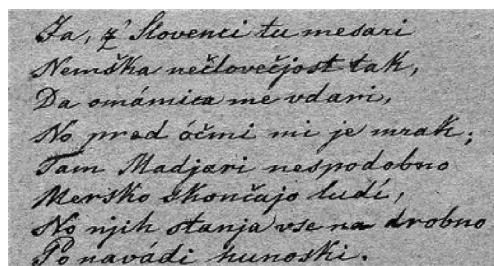 Ja, z' Slovenci tu mesari
Nemška nečlovečjost tak,
Da omámica me vdari,
No pred óčmi mi je mrak;
Tam Madjari nespodobno
Mersko skončajo ludí,
No njih stanja vse na drobno
Po navádi hunoski.